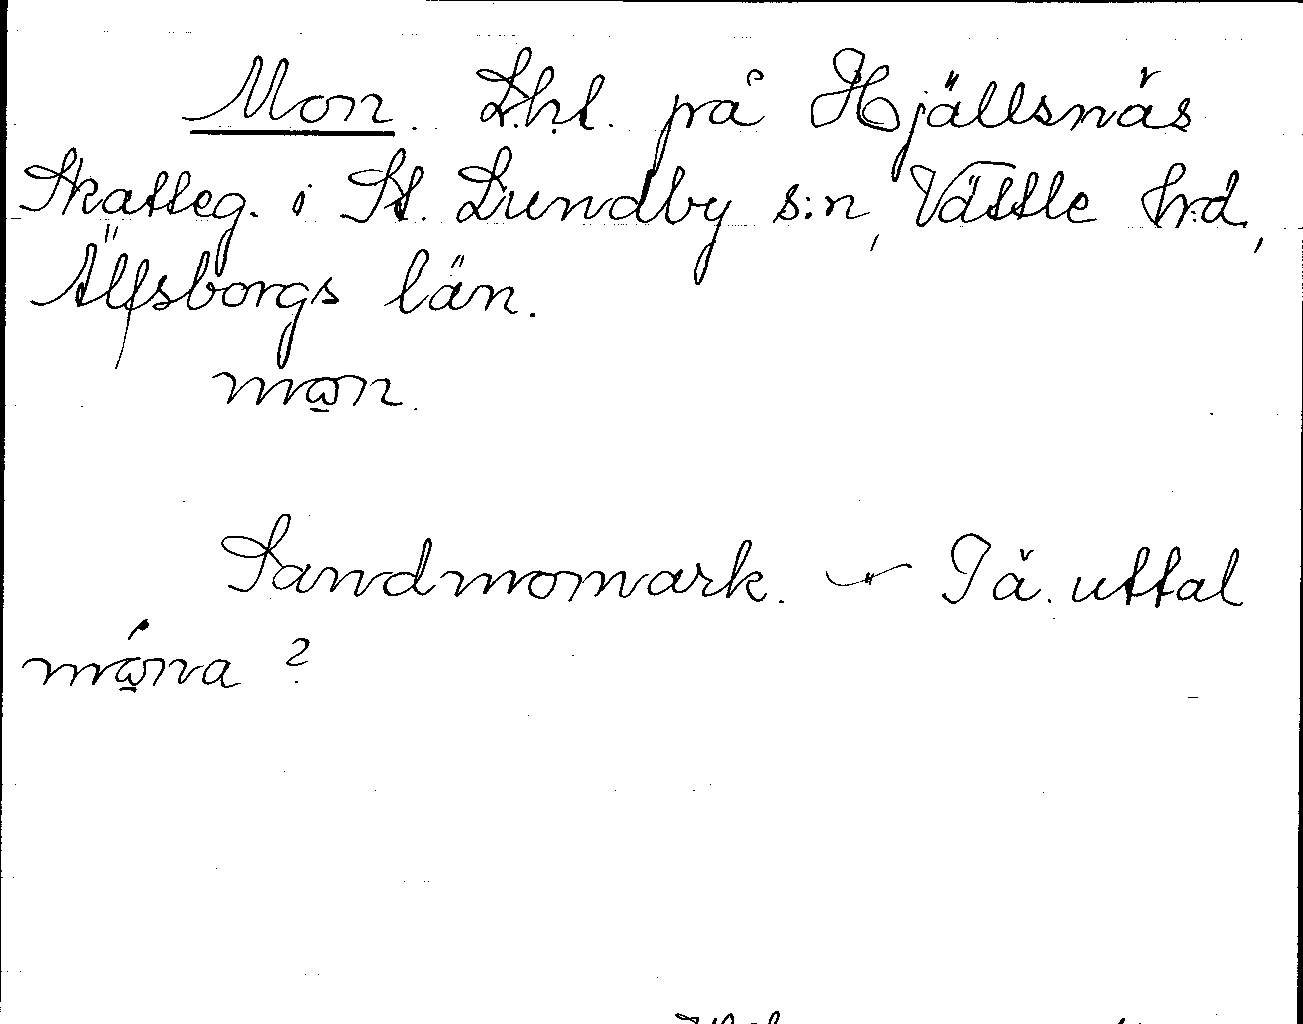 Mon. Lht. på Hjällsnäs
Skatteg. i St. Lundby s:n, Vättle hrd,
Älfsborgs län.
mo̱n.
Sandmomark. — Jä. uttal
mó̱na ?